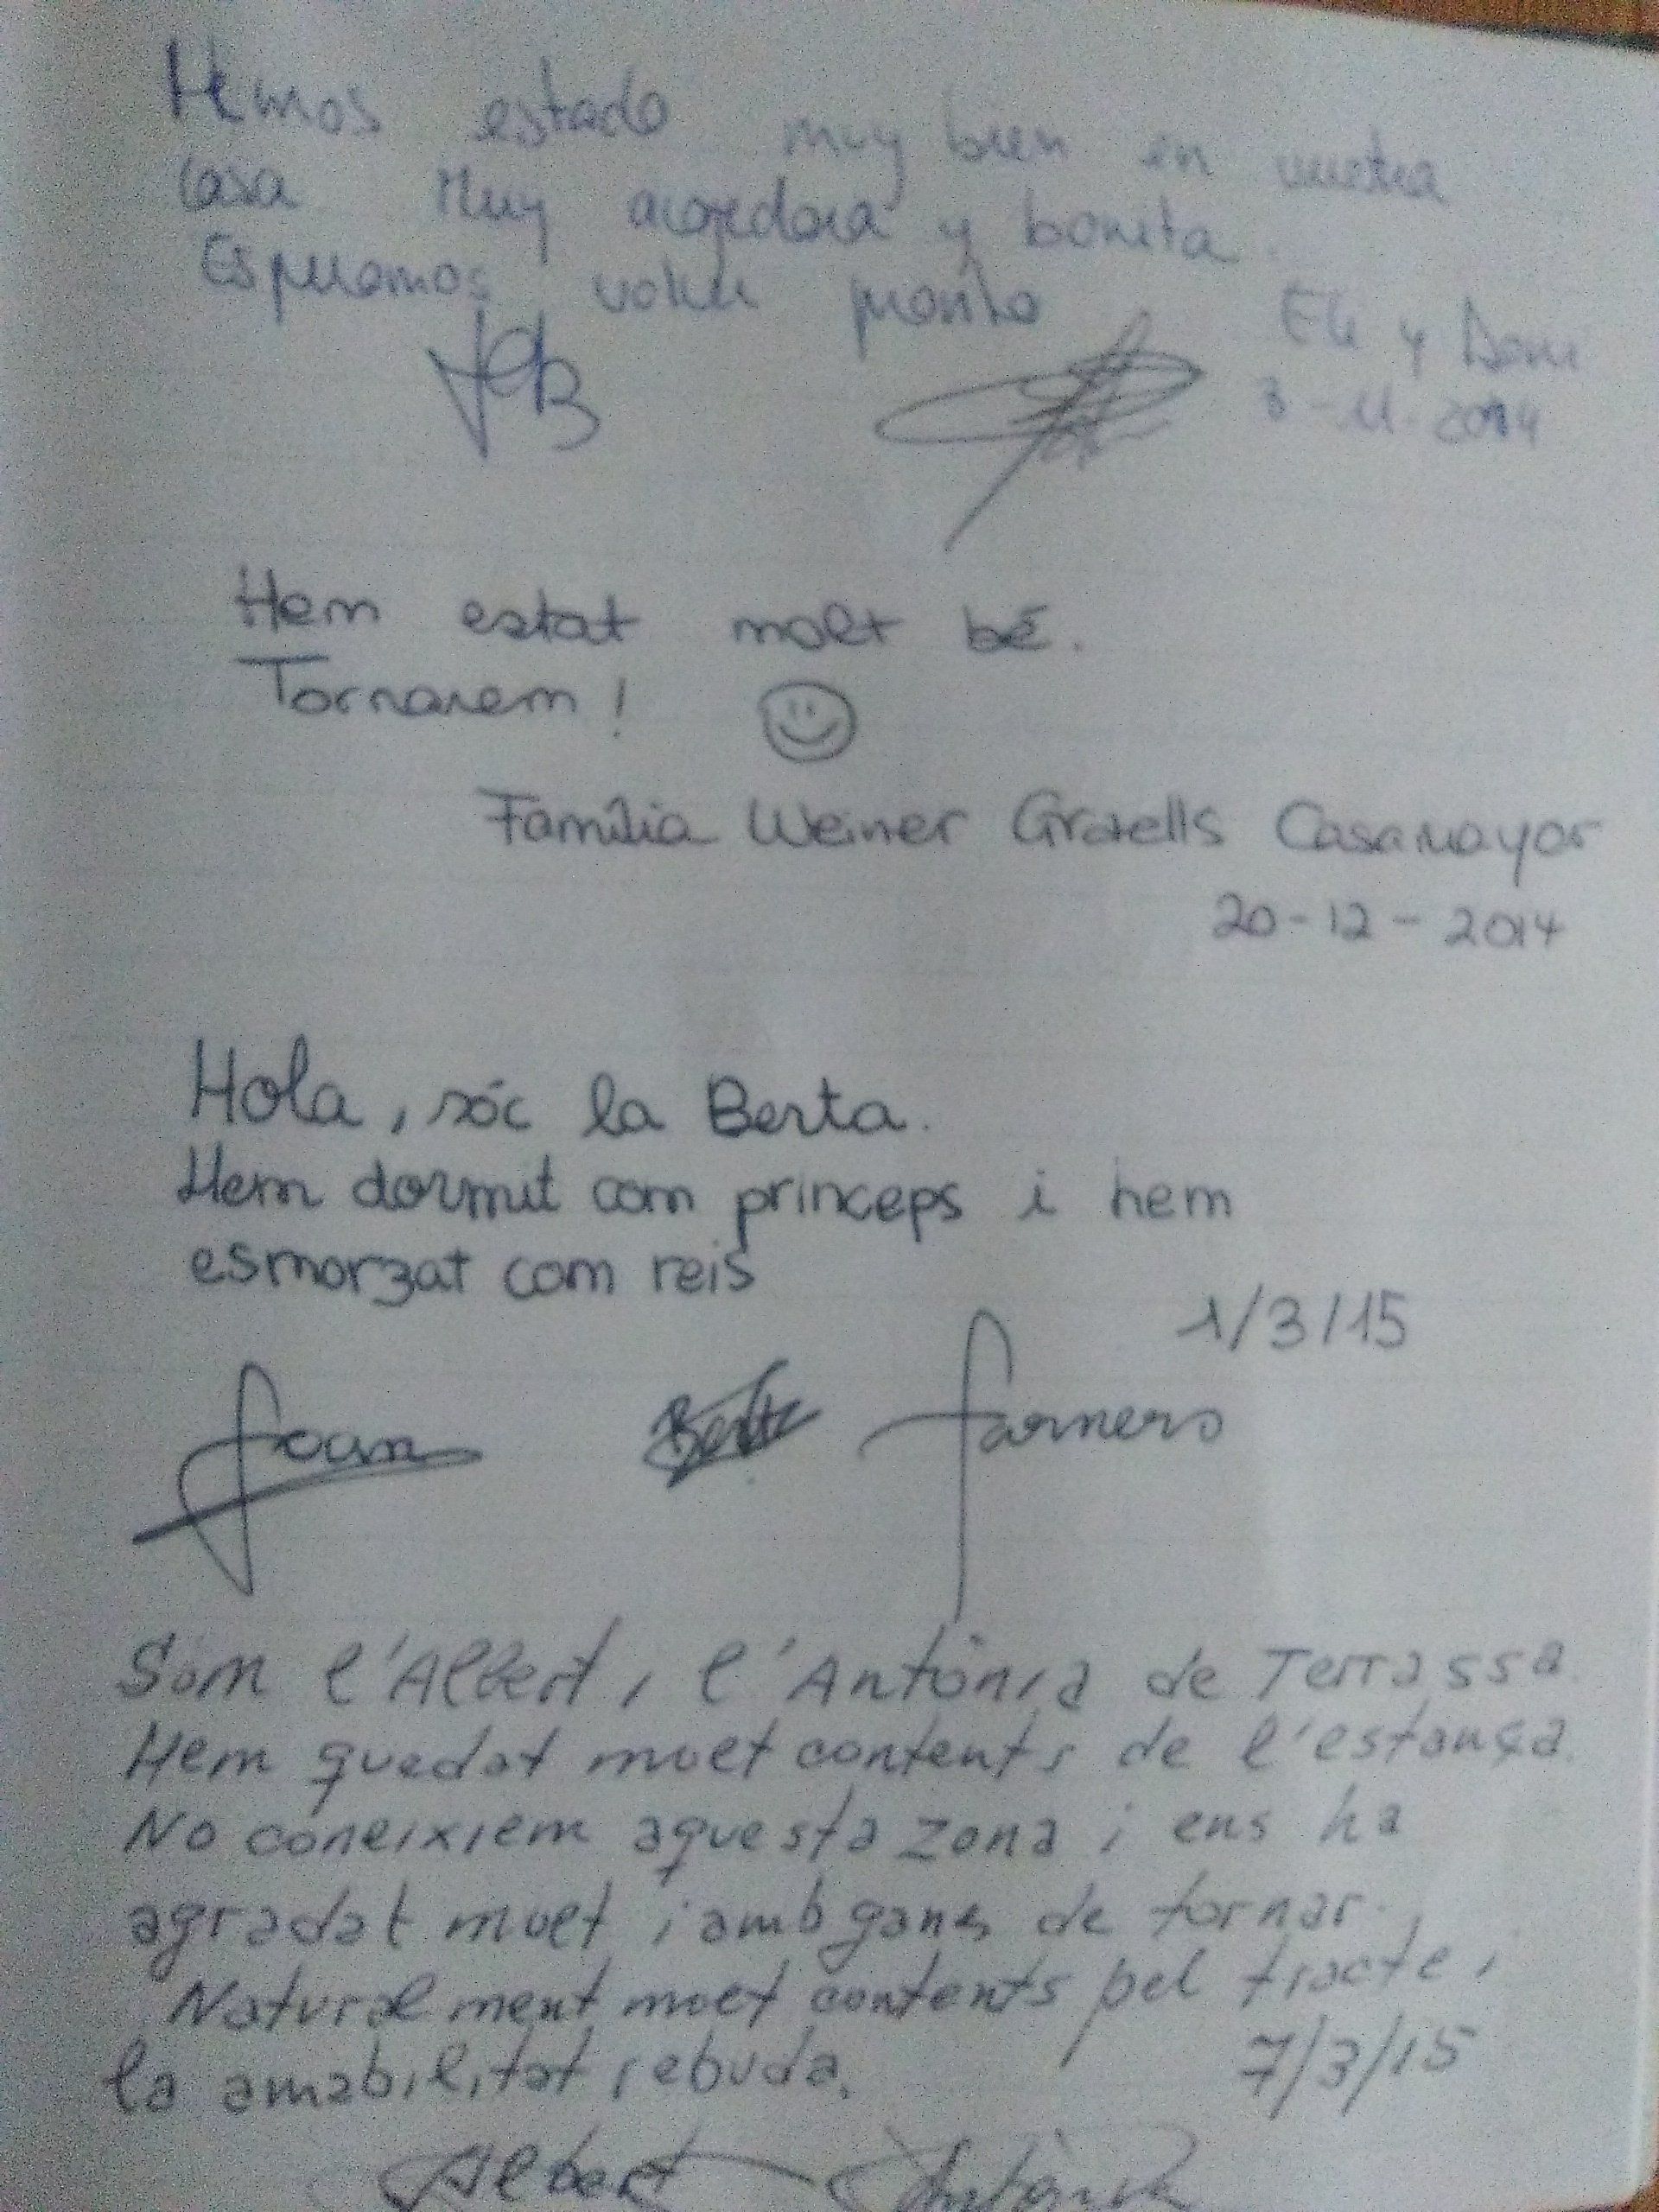 Hemos estado muy bien en vuestra
casa Muy acogedora y bonita.
Esperamos volver pronto
Eli y Dani
3-11-2014
Hem estat molt bé.
Tornarem!
Família Weiner Graells Casamayor
20-12-2014
Hola, sóc la Berta.
Hem dormit com princeps i hem
esmorzat com reis
1/3/15
Joan Berta farners
Som l'Albert, l'Antònia de Terrassa.
Hem quedat molt contents de l'estança.
No coneixiem aquesta zona i ens ha
agradat molt i amb ganes de tornar.
Naturalment molt contents pel tracte i
la amabilitat rebuda.
7/3/15
Albert Antònia